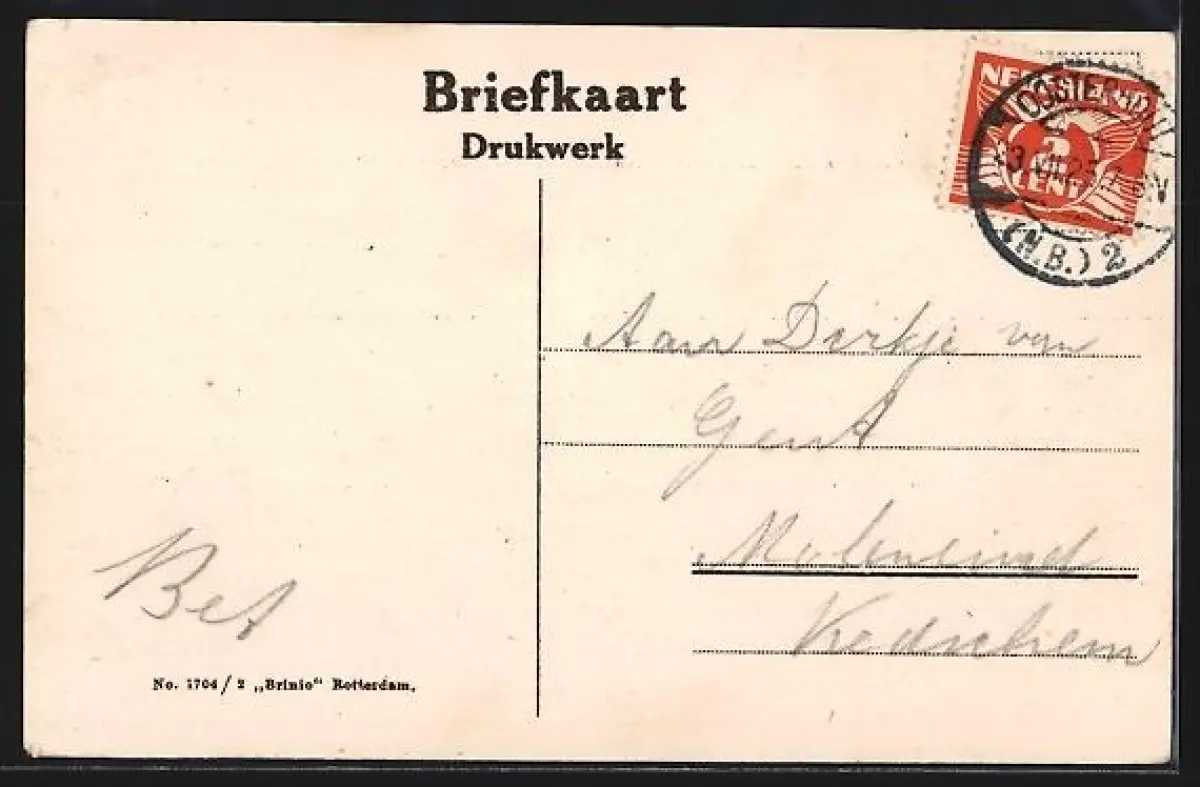 Briefkaart
Drukwerk
NEDERLAND
2
CENT
OOSTERHOUT
(N.B.) 2
Aan Dirkje van
Gent
Moleneind
Kedichem
Bet
No. 1704/2 „Brinio“ Rotterdam.